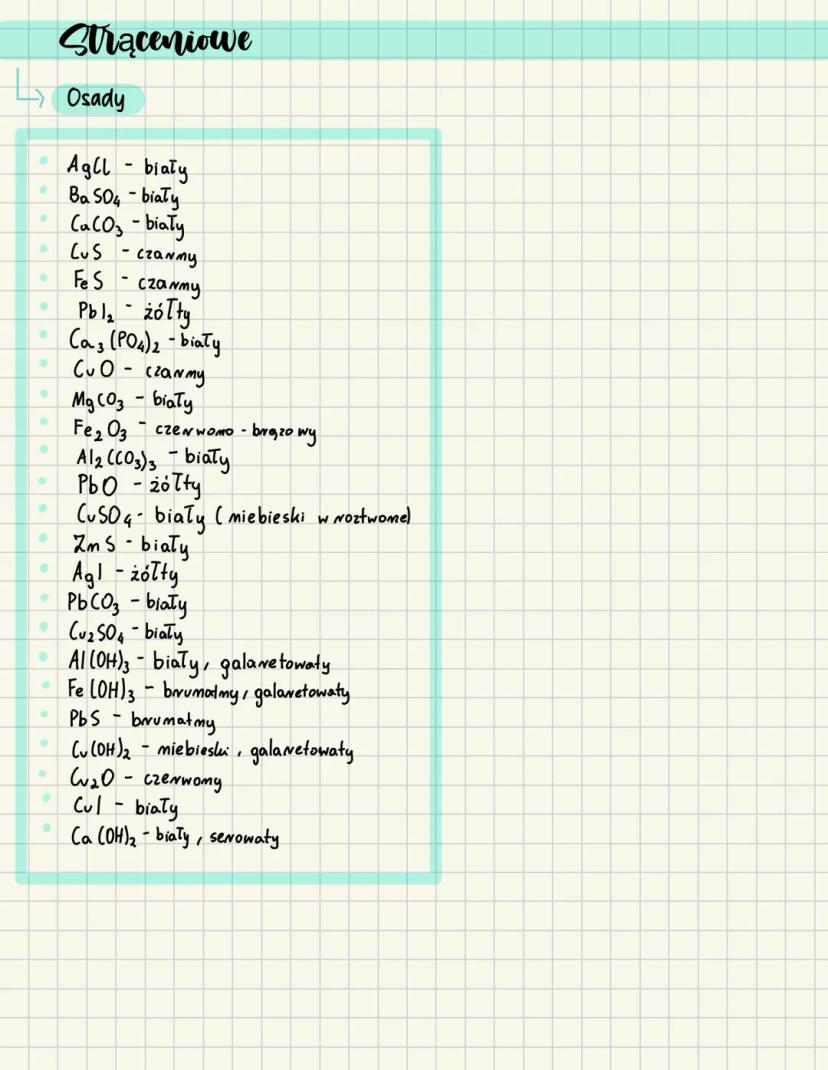 Strąceniowe
Osady
AgCl - biały
BaSO₄ - biały
CaCO₃ - biały
CuS - czarny
FeS - czarny
PbI₂ - żółty
Ca₃(PO₄)₂ - biały
CuO - czarny
MgCO₃ - biały
Fe₂O₃ - czerwono - brązowy
Al₂(CO₃)₃ - biały
PbO - żółty
CuSO₄ - biały (niebieski w roztworze)
ZnS - biały
AgI - żółty
PbCO₃ - biały
Cu₂SO₄ - biały
Al(OH)₃ - biały, galaretowaty
Fe(OH)₃ - brunatny, galaretowaty
PbS - brunatny
Cu(OH)₂ - niebieski, galaretowaty
Cu₂O - czerwony
CuI - biały
Ca(OH)₂ - biały, serowaty